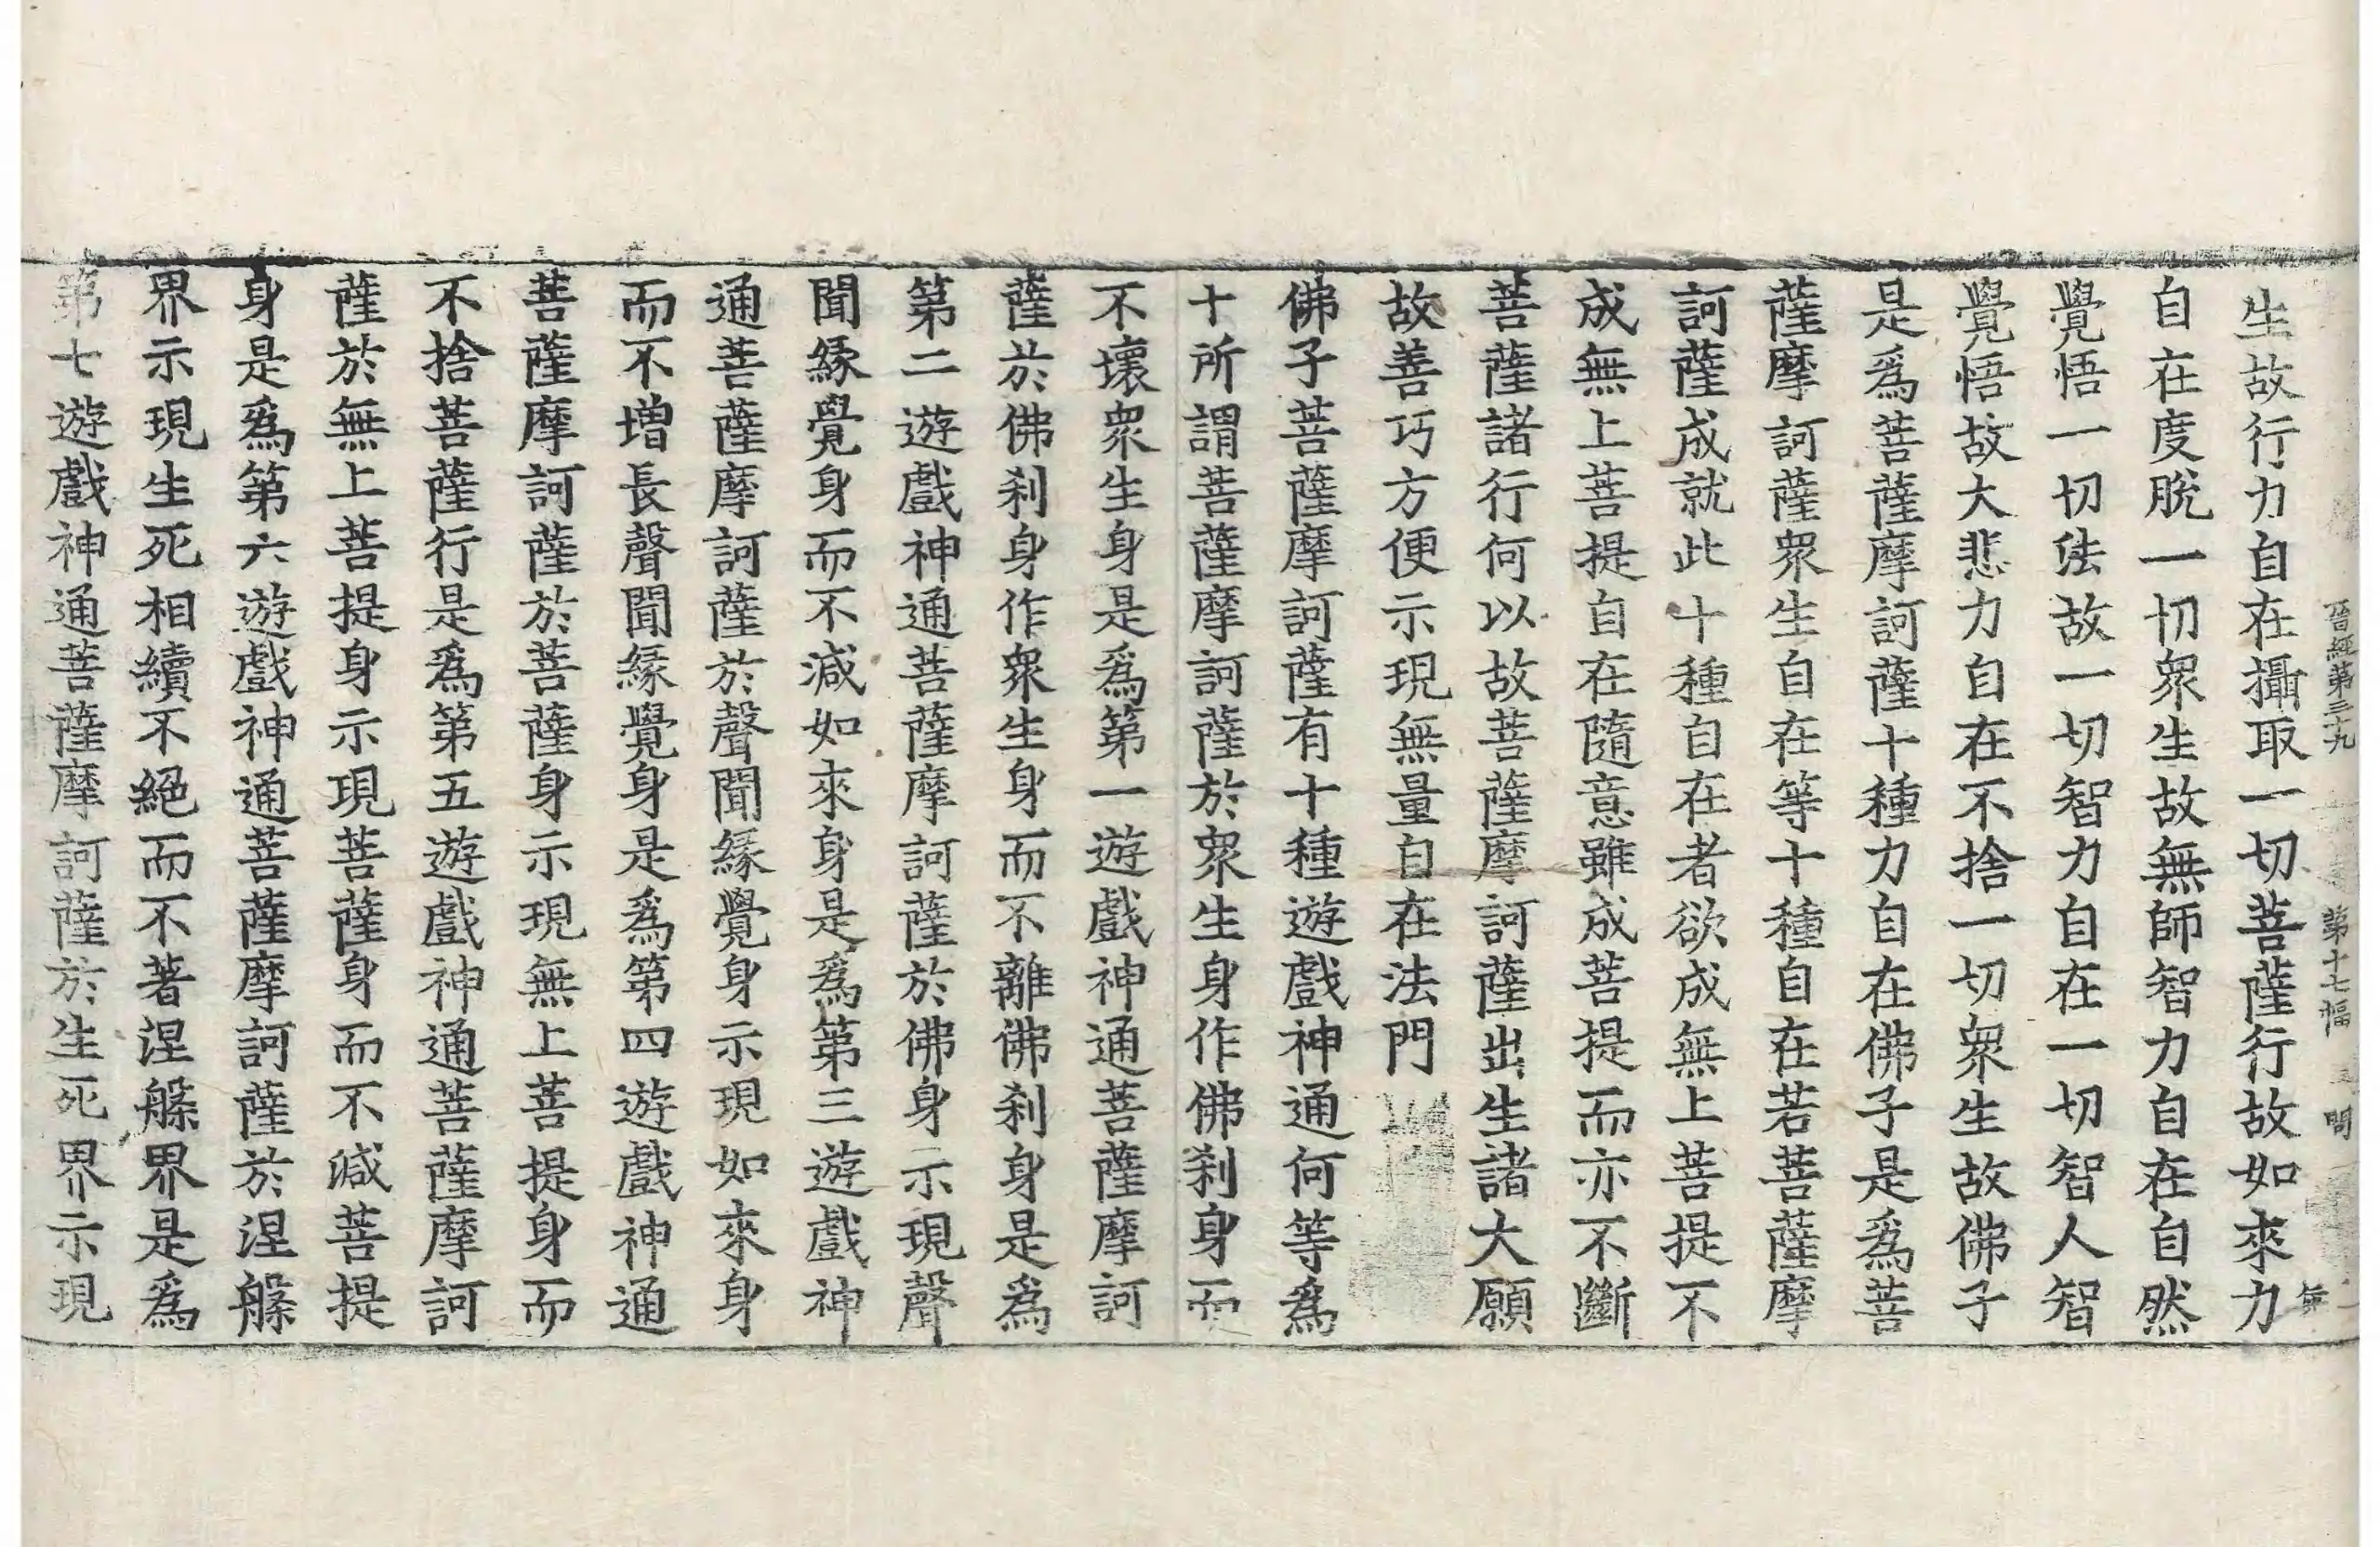 晉經第三十九 第十七幅
生故行力自在攝取一切菩薩行故如來力
自在度脫一切衆生故無師智力自在自然
覺悟一切法故一切智力自在一切智人智
覺悟故大悲力自在不捨一切衆生故佛子
是爲菩薩摩訶薩十種力自在佛子是爲菩
薩摩訶薩衆生自在等十種自在若菩薩摩
訶薩成就此十種自在者欲成無上菩提不
成無上菩提自在隨意雖成菩提而亦不斷
菩薩諸行何以故菩薩摩訶薩出生諸大願
故善巧方便示現無量自在法門
佛子菩薩摩訶薩有十種遊戲神通何等爲
十所謂菩薩摩訶薩於衆生身作佛刹身而
不壞衆生身是爲第一遊戲神通菩薩摩訶
薩於佛刹身作衆生身而不離佛刹身是爲
第二遊戲神通菩薩摩訶薩於佛身示現聲
聞緣覺身而不減如來身是爲第三遊戲神
通菩薩摩訶薩於聲聞緣覺身示現如來身
而不增長聲聞緣覺身是爲第四遊戲神通
菩薩摩訶薩於菩薩身示現無上菩提身而
不捨菩薩行是爲第五遊戲神通菩薩摩訶
薩於無上菩提身示現菩薩身而不減菩提
身是爲第六遊戲神通菩薩摩訶薩於涅槃
界示現生死相續不絕而不著涅槃界是爲
第七遊戲神通菩薩摩訶薩於生死界示現